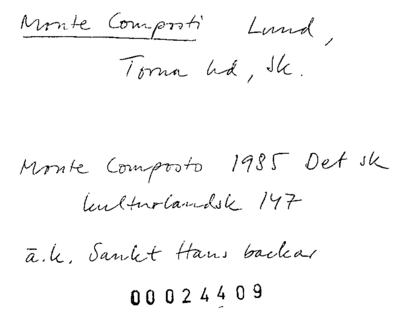 Monte Composti Lund,
Torna hd, Sk.
Monte Composto 1985 Det sk
kulturlandsk 147
ä.k. Sankt Hans backar
00024409